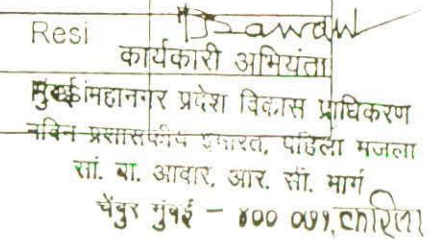 Resi
कार्यकारी अभियंता
मुंबई महानगर प्रदेश विकास प्राधिकरण
नविन प्रशासकीय इमारत, पहिला मजला
सां. बा. आवार, आर. सी. मार्ग
चेंबुर मुंबई - ४०० ०७१, करिता